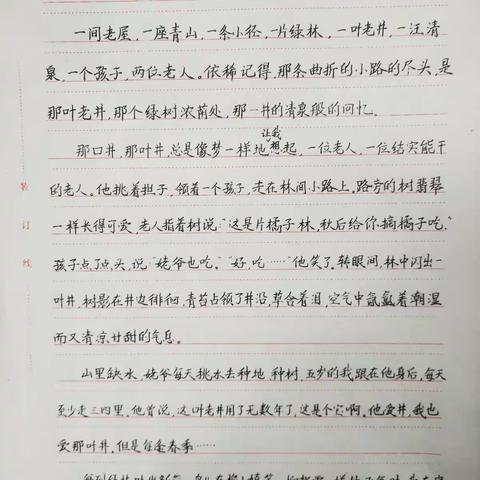 一间老屋，一座青山，一条小径，一片绿林，一叶老井，一汪清
泉，一个孩子，两位老人。依稀记得，那条曲折的小路的尽头，是
那叶老井，那个绿树浓荫处，那一井的清泉般的回忆。
那口井，那叶井，总是像梦一样地让我想起，一位老人，一位结实能干
的老人。他挑着担子，领着一个孩子，走在林间小路上。路旁的树翡翠
一样长得可爱，老人指着树说：“这是片橘子林，秋后给你摘橘子吃。”
孩子点了点头，说：“姥爷也吃。”“好，吃……”他笑了。转眼间，林中闪出一
叶井，树影在井边徘徊，青苔占领了井沿，草含着泪，空气中氤氲着潮湿
而又清凉甘甜的气息。
山里缺水，姥爷每天挑水去种地、种树，五岁的我跟在他身后，每天
至少走三四里。他曾说，这叶老井用了无数年了，这是个宝啊。他爱井，我也
爱那叶井，但是每逢春季……
装
订
线